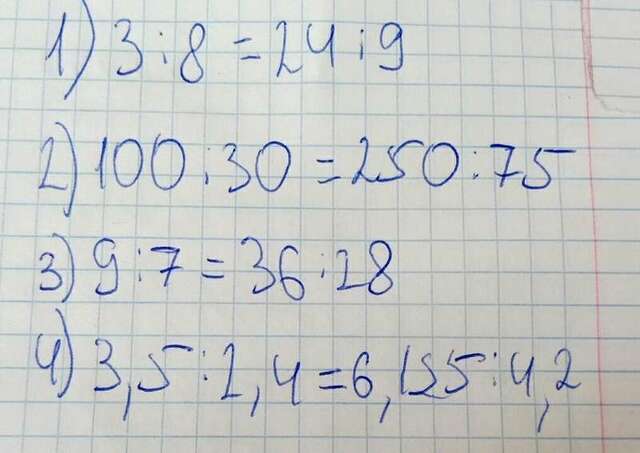 1) 3:8=24:9
2) 100:30=250:75
3) 9:7=36:28
4) 3,5:2,4=6,125:4,2